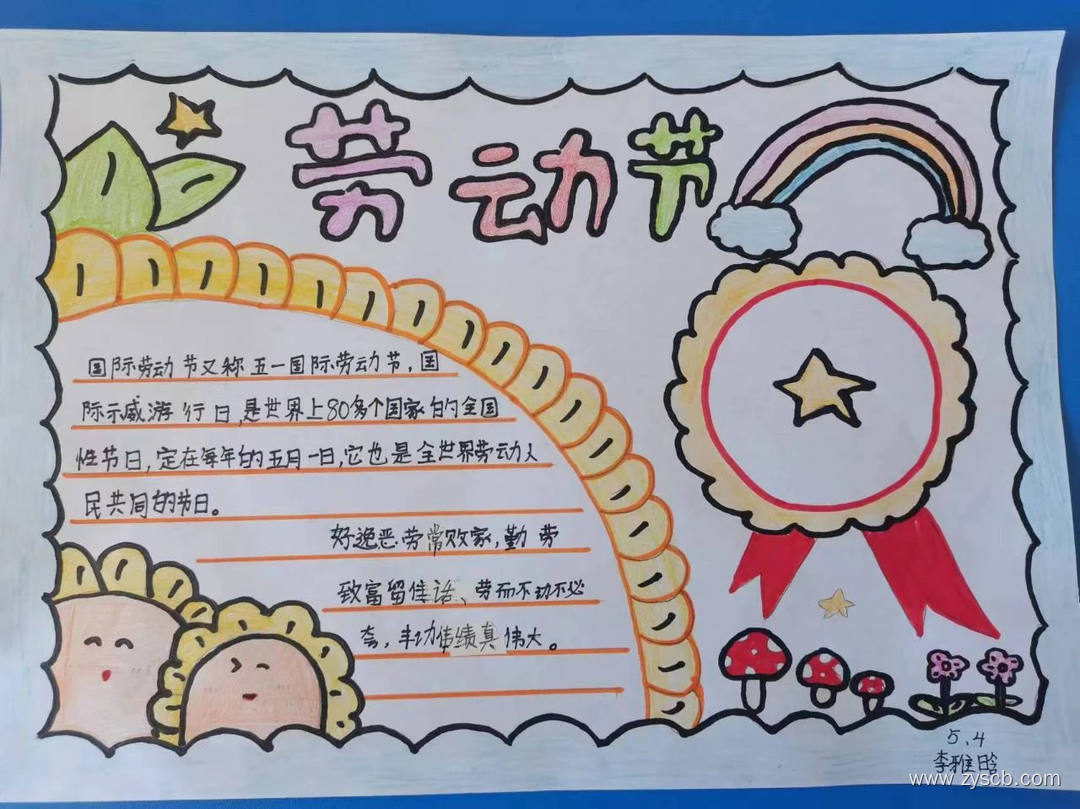 劳动节
国际劳动节又称五一国际劳动节,国
际示威游行日,是世界上80多个国家的全国
性节日,定在每年的五月一日,它也是全世界劳动人
民共同的节日。
好逸恶劳常败家,勤劳
致富留佳话、劳而不功不必
夸,丰功伟绩真伟大。
5.4
李雅晗
www.zyscb.com